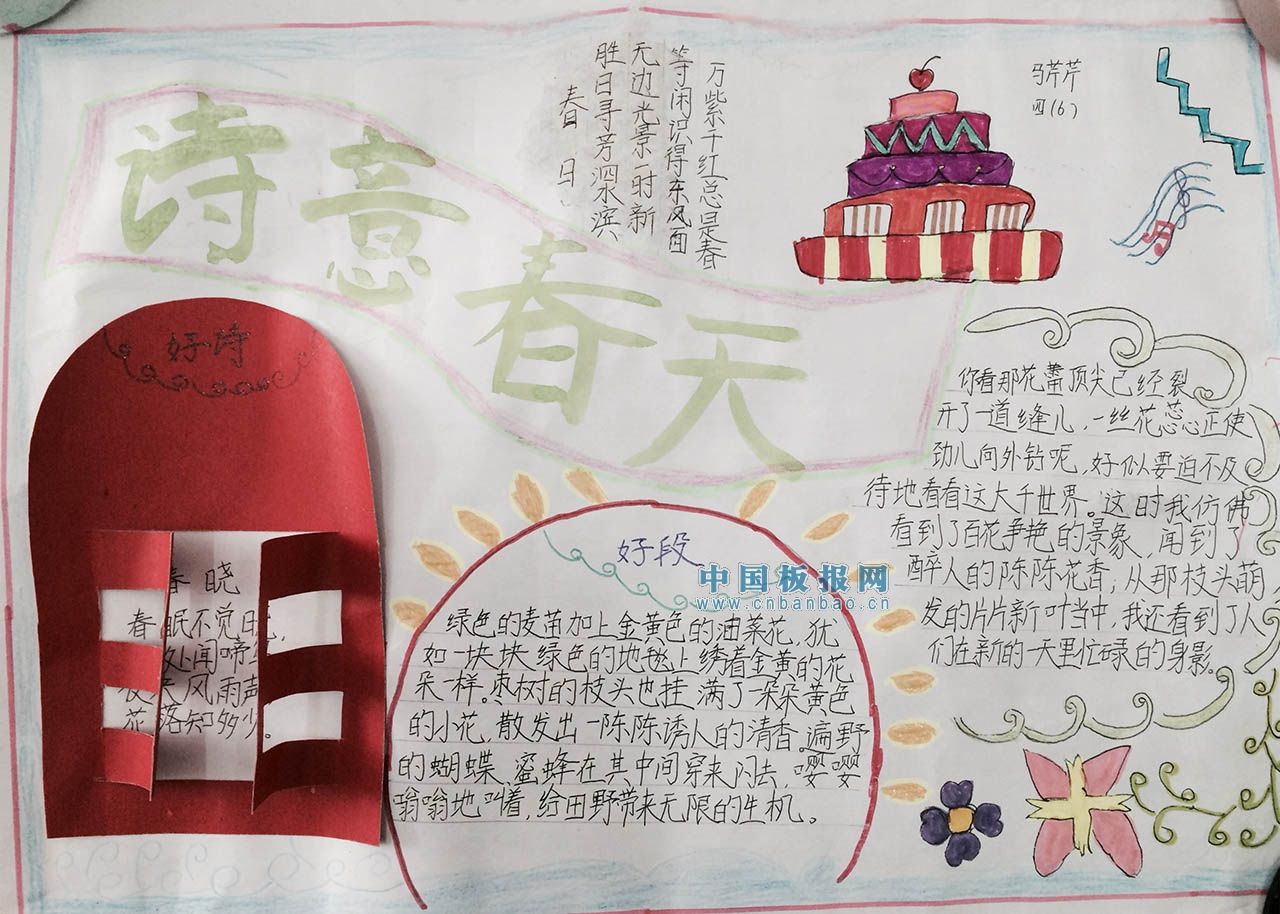 诗意春天
春日
胜日寻芳泗水滨
无边光景一时新
等闲识得东风面
万紫千红总是春
马芹芹
四(6)
好诗
春晓
春眠不觉
处闻啼
风雨声
花落知多少。
好段
绿色的麦苗加上金黄色的油菜花，犹
如一块块绿色的地毯上绣着金黄的花
朵一样。枣树的枝头也挂满了一朵朵黄色
的小花，散发出一陈陈诱人的清香。遍野
的蝴蝶、蜜蜂在其中间穿来闪去，嘤嘤
嗡嗡地叫着，给田野带来无限的生机。
你看那花蕾顶尖已经裂
开了一道缝儿，一丝花蕊蕊正使
劲儿向外钻呢，好似要迫不及
待地看看这大千世界。这时我仿佛
看到了百花争艳的景象，闻到了
醉人的陈陈花香；从那枝头萌
发的片片新叶当中，我还看到了人
们在新的一天里忙碌的身影。
中国板报网
www.cnbanbao.cn